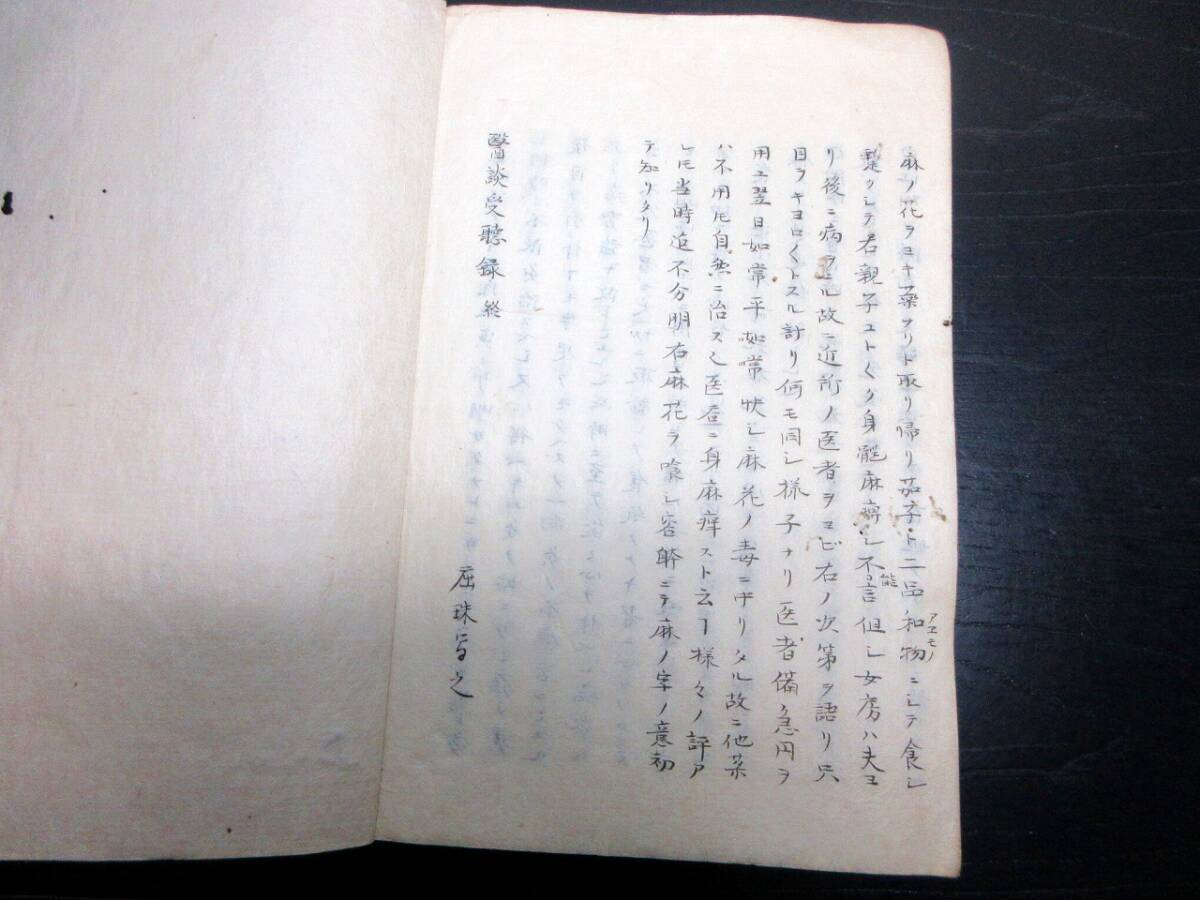 麻ノ花ヲヨキ菜ナリト取リ帰リ茄子ト二品和物ニシテ食シ
アエモノ
シテ右親子ヿトく ク身體麻痺シ不言但シ女房ハ夫ヨ
能
リ後ニ病ヲル故ニ近所ノ医者ヲヨビ右ノ次第ヲ語リ只
目ヲキヨロくトスル計リ何モ同シ様子ナリ医者備急円ヲ
用ユ翌日如常平如常快シ麻花ノ毒ニ中リタル故ニ他薬
ハ不用ㇳモ自然ニ治スト医者ニ身麻痺スト云フ様々ノ評ア
レㇳモ当時迄不分明右麻花ヲ喰シ容躰ニテ麻ノ字ノ意初
テ知リタリ
醫談受聽録終
屈珠写之